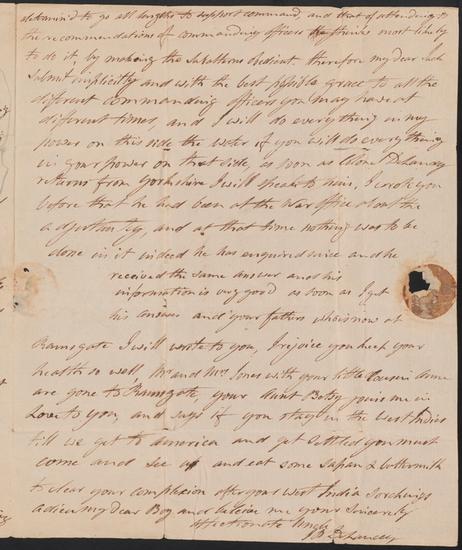 determin'd to go all lengths to support command, and that of attending to
the recommendations of commanding officers the thinks most likely
to do it, by making the Subalterns obedient therefore my dear Jack
Submit implicitly and with the best possible grace to all the
different commanding officers you may have at
different times, and I will do everything in my
power on this side the water if you will do everything
in your power on that side, as soon as Colonel DeLancey
returns from Yorkshire I will speak to him, I wrote you
before that he had been at the War office about the
adjutantcy, and at that time nothing was to be
done in it indeed he has enquired since and he
received the same answer and his
information is very good as soon as I get
his answer and your fathers who is now at
Ramsgate I will write to you, I rejoice you keep your
health so well, Mr. and Mrs. Jones with your little Cousin Anne
are gone to Ramsgate, your Aunt Betsy joins me in
Love to you, and says if you stay in the West Indies
till we get to america and get settled you must
come and see us and eat some Sapan &
to clear your complexion after your West India Scorchings
adieu my dear Boy and believe me your Sincerely
affectionate Uncle
DeLancey